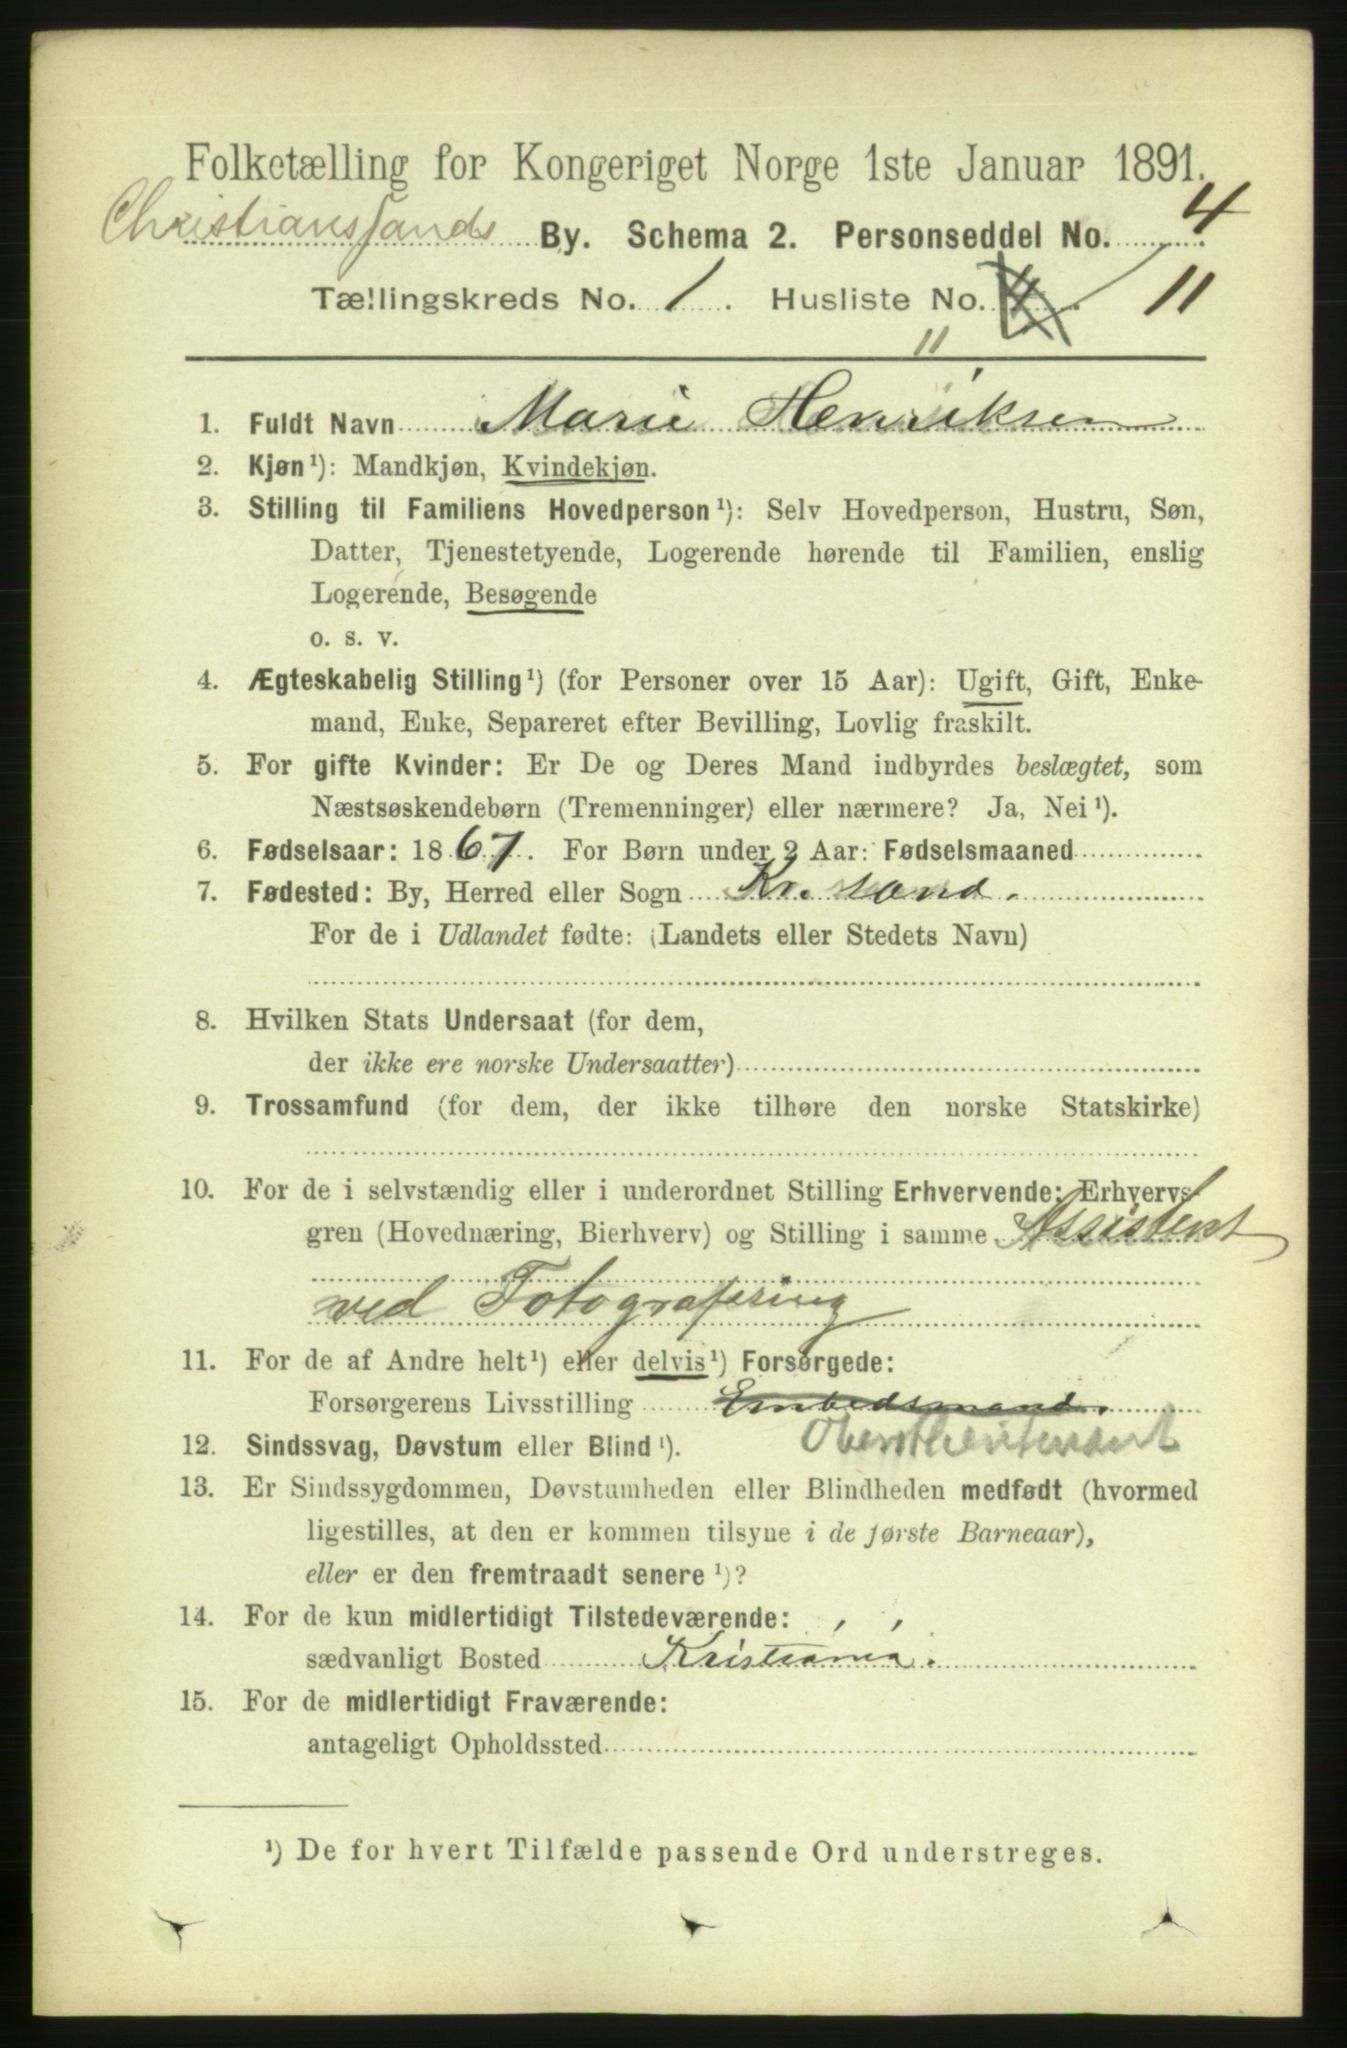 Folketælling for Kongeriget Norge 1ste Januar 1891.
Christianssands By. Schema 2. Personseddel No. 4
Tællingskreds No. 1. Husliste No. 4. 11
11
1. Fuldt Navn Marie Henriksen
2. Kjøn¹): Mandkjøn, Kvindekjøn.
3. Stilling til Familiens Hovedperson¹): Selv Hovedperson, Hustru, Søn,
Datter, Tjenestetyende, Logerende hørende til Familien, enslig
Logerende, Besøgende
o. s. v.
4. Ægteskabelig Stilling¹) (for Personer over 15 Aar): Ugift, Gift, Enke-
mand, Enke, Separeret efter Bevilling, Lovlig fraskilt.
5. For gifte Kvinder: Er De og Deres Mand indbyrdes beslægtet, som
Næstsøskendebørn (Tremenninger) eller nærmere? Ja, Nei¹).
6. Fødselsaar: 1867. For Børn under 2 Aar: Fødselsmaaned
7. Fødested: By, Herred eller Sogn Kr.sand.
For de i Udlandet fødte: (Landets eller Stedets Navn)
8. Hvilken Stats Undersaat (for dem,
der ikke ere norske Undersaatter)
9. Trossamfund (for dem, der ikke tilhøre den norske Statskirke)
10. For de i selvstændig eller i underordnet Stilling Erhvervende: Erhvervs-
gren (Hovednæring, Bierhverv) og Stilling i samme Assistent
ved Fotografering
11. For de af Andre helt¹) eller delvis¹) Forsørgede:
Forsørgerens Livsstilling Embedsmand.
12. Sindssvag, Døvstum eller Blind¹). Oberstleutenant
13. Er Sindssygdommen, Døvstumheden eller Blindheden medfødt (hvormed
ligestilles, at den er kommen tilsyne i de første Barneaar),
eller er den fremtraadt senere¹)?
14. For de kun midlertidigt Tilstedeværende:
sædvanligt Bosted Kristiania.
15. For de midlertidigt Fraværende:
antageligt Opholdssted
¹) De for hvert Tilfælde passende Ord understreges.